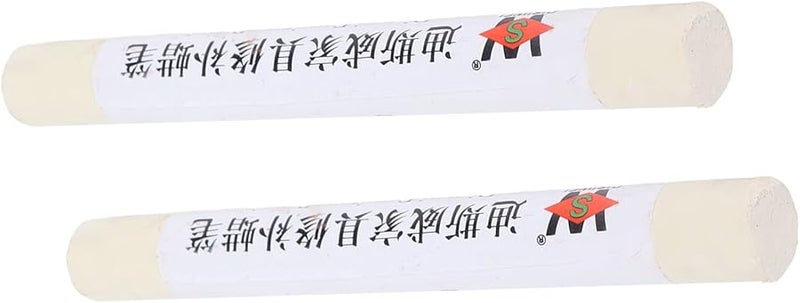 迪斯威家具修补蜡笔
S
W
®
迪斯威家具修补蜡笔
S
W
®